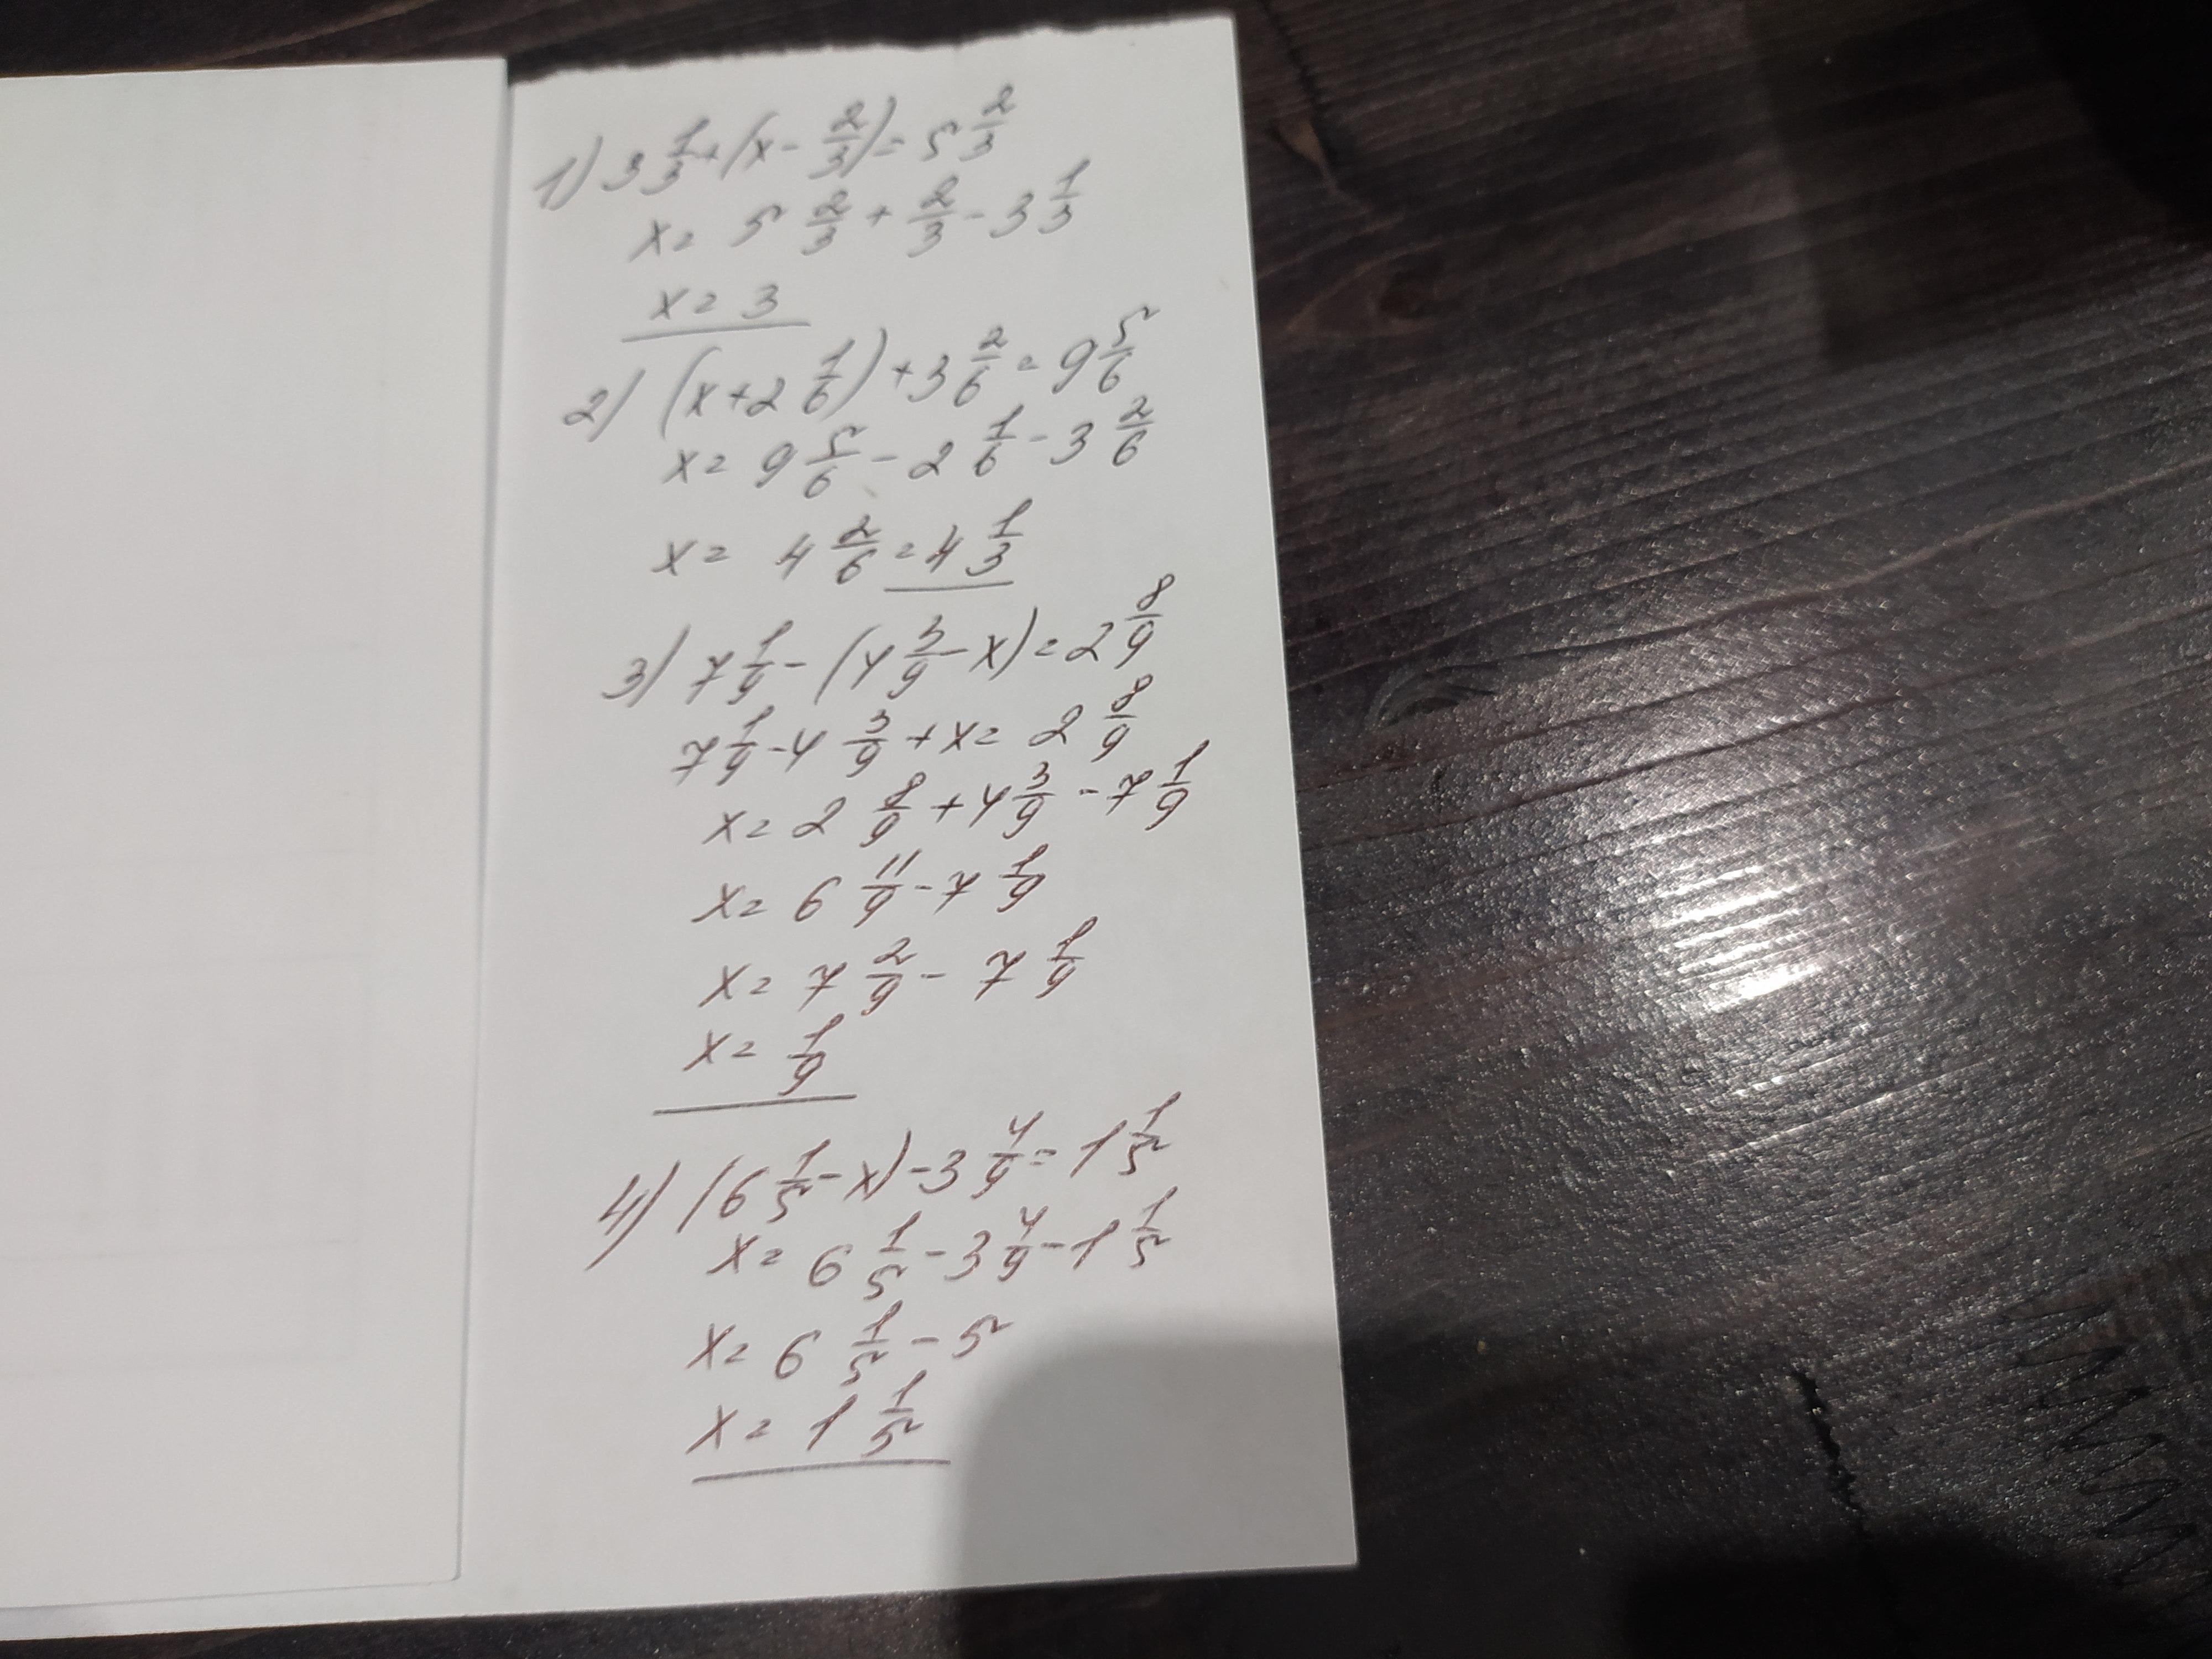 1) 3 1/3 + (x - 2/3) = 5 2/3
x = 5 2/3 + 2/3 - 3 1/3
x = 3
2) (x + 2 1/6) + 3 2/6 = 9 5/6
x = 9 5/6 - 2 1/6 - 3 2/6
x = 4 2/6 = 4 1/3
3) 7 1/9 - (4 3/9 - x) = 2 8/9
7 1/9 - 4 3/9 + x = 2 8/9
x = 2 8/9 + 4 3/9 - 7 1/9
x = 6 11/9 - 7 1/9
x = 7 2/9 - 7 1/9
x = 1/9
4) (6 1/5 - x) - 3 4/9 = 1 1/5
x = 6 1/5 - 3 4/9 - 1 1/5
x = 6 1/5 - 5
x = 1 1/5